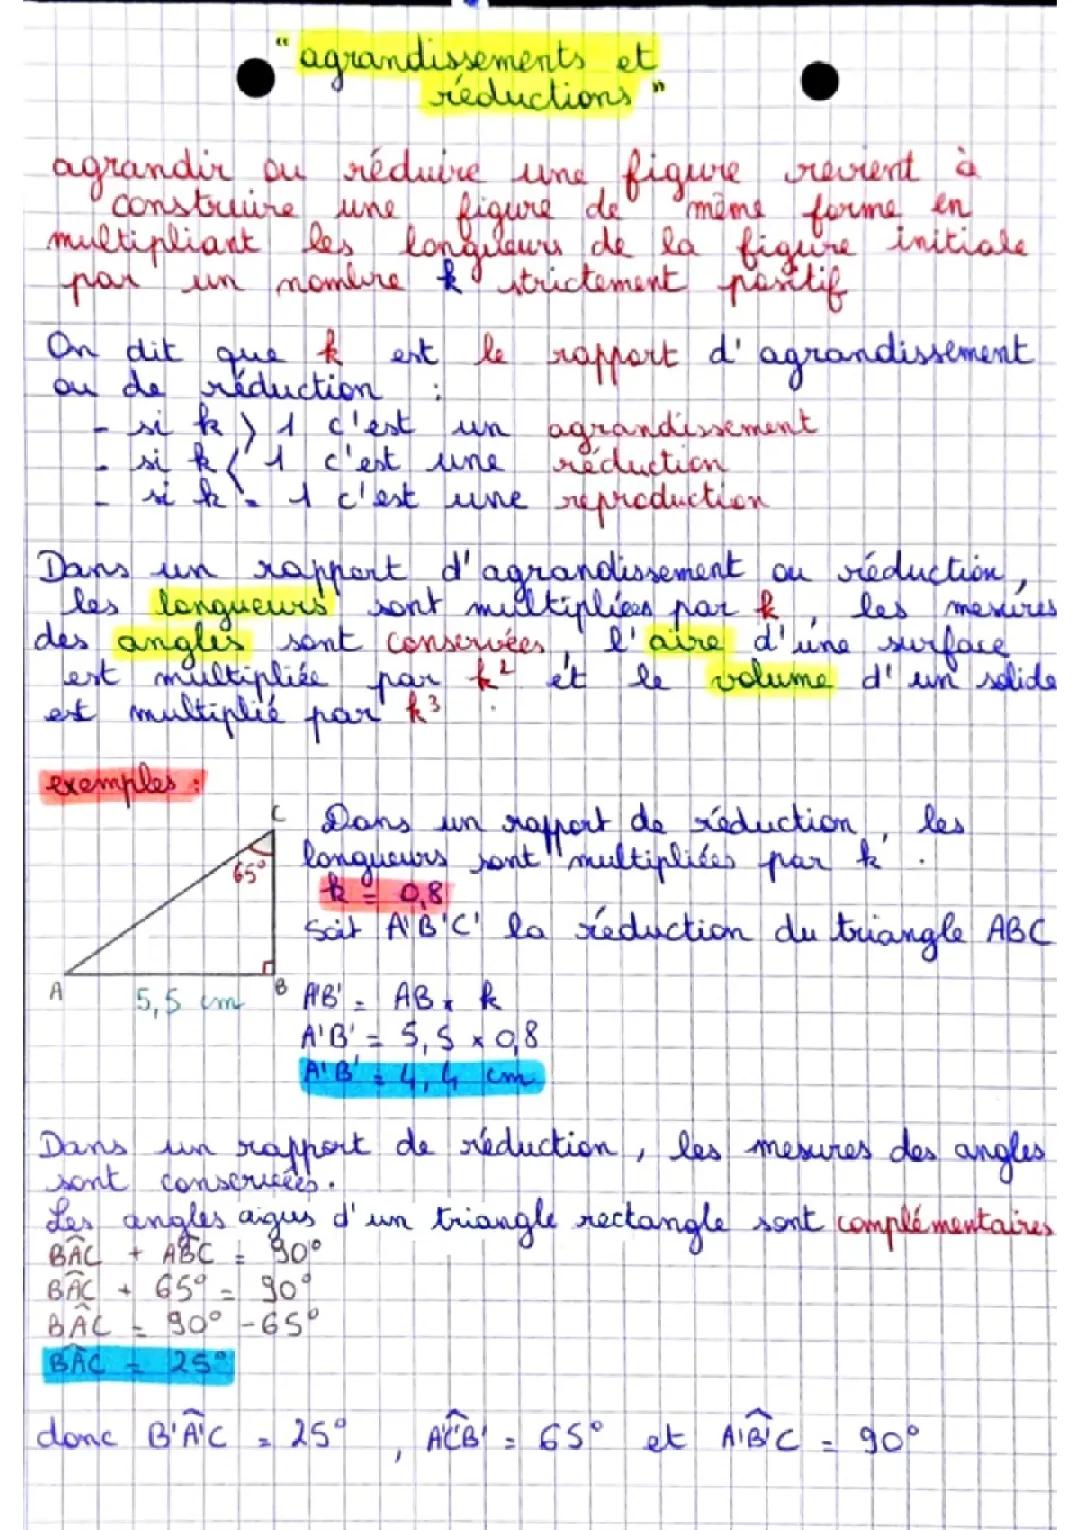 "agrandissements et
réductions"
agrandir ou réduire une figure revient à
construire une figure de même forme en
multipliant les longueurs de la figure initiale
par un nombre k strictement positif
On dit que k est le rapport d'agrandissement
ou de réduction :
- si k > 1 c'est un agrandissement
- si k < 1 c'est une réduction
- si k = 1 c'est une reproduction
Dans un rapport d'agrandissement ou réduction,
les longueurs sont multipliées par k, les mesures
des angles sont conservées, l'aire d'une surface
est multipliée par k² et le volume d'un solide
est multiplié par k³.
exemples :
C
65°
A
5,5 cm
B
Dans un rapport de réduction, les
longueurs sont multipliées par k.
k = 0,8
Soit A'B'C' la réduction du triangle ABC
A'B' = AB x k
A'B' = 5,5 x 0,8
A'B' = 4,4 cm
Dans un rapport de réduction, les mesures des angles
sont conservées.
Les angles aigus d'un triangle rectangle sont complémentaires
BÂC + AB̂C = 90°
BÂC + 65° = 90°
BÂC = 90° - 65°
BÂC = 25°
donc B'Â'C = 25°, A'ĈB' = 65° et A'B̂'C = 90°